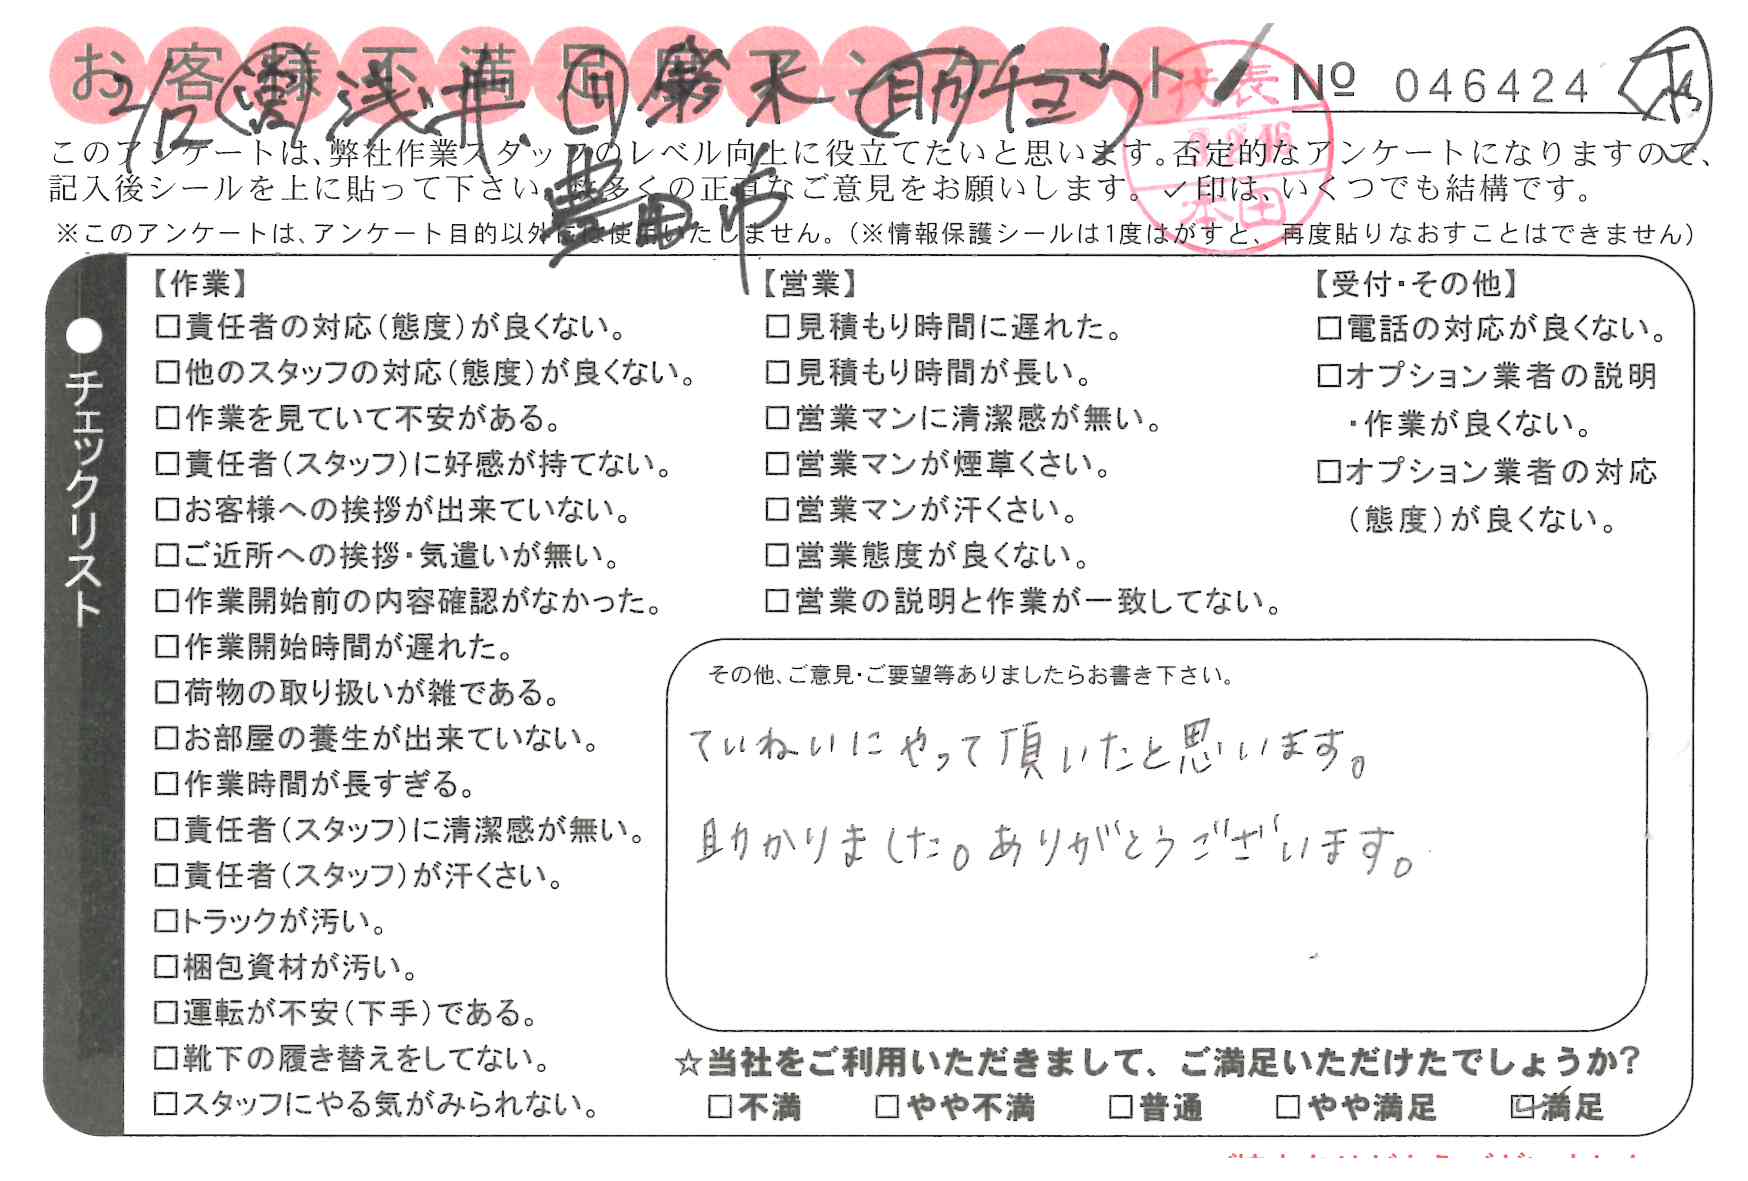 お客様不満足度アンケート
№ 046424
2/12 浅井 鈴木 助
豊田市
代表
本田
このアンケートは、弊社作業スタッフのレベル向上に役立てたいと思います。否定的なアンケートになりますので、
記入後シールを上に貼って下さい。数多くの正直なご意見をお願いします。✓印は、いくつでも結構です。
※このアンケートは、アンケート目的以外には使用いたしません。(※情報保護シールは1度はがすと、再度貼りなおすことはできません)
●チェックリスト
【作業】
□責任者の対応(態度)が良くない。
□他のスタッフの対応(態度)が良くない。
□作業を見ていて不安がある。
□責任者(スタッフ)に好感が持てない。
□お客様への挨拶が出来ていない。
□ご近所への挨拶・気遣いが無い。
□作業開始前の内容確認がなかった。
□作業開始時間が遅れた。
□荷物の取り扱いが雑である。
□お部屋の養生が出来ていない。
□作業時間が長すぎる。
□責任者(スタッフ)に清潔感が無い。
□責任者(スタッフ)が汗くさい。
□トラックが汚い。
□梱包資材が汚い。
□運転が不安(下手)である。
□靴下の履き替えをしてない。
□スタッフにやる気がみられない。
【営業】
□見積もり時間に遅れた。
□見積もり時間が長い。
□営業マンに清潔感が無い。
□営業マンが煙草くさい。
□営業マンが汗くさい。
□営業態度が良くない。
□営業の説明と作業が一致してない。
【受付・その他】
□電話の対応が良くない。
□オプション業者の説明
・作業が良くない。
□オプション業者の対応
(態度)が良くない。
その他、ご意見・ご要望等ありましたらお書き下さい。
ていねいにやって頂いたと思います。
助かりました。ありがとうございます。
☆当社をご利用いただきまして、ご満足いただけたでしょうか?
□不満 □やや不満 □普通 □やや満足 ☑満足